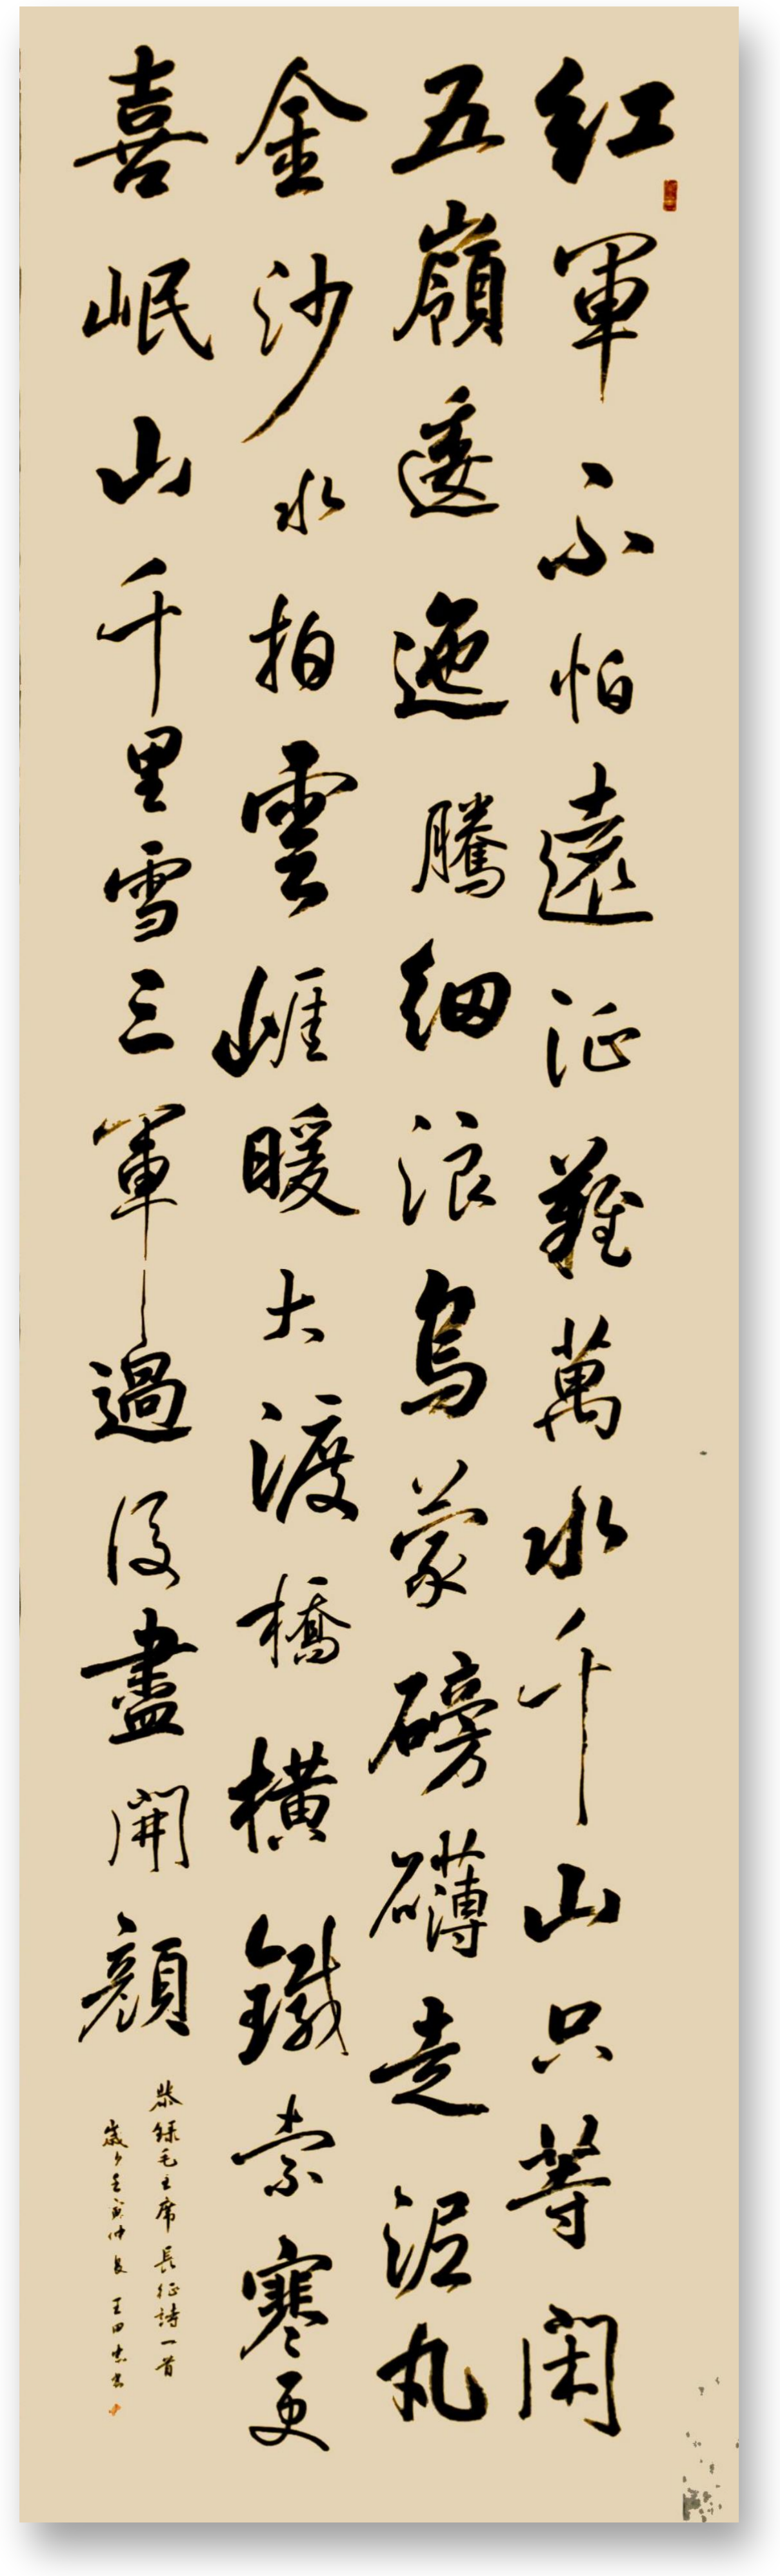 紅軍不怕遠征難萬水千山只等閑
五嶺逶迤騰細浪烏蒙磅礴走泥丸
金沙水拍雲崖暖大渡橋橫鐵索寒更
喜岷山千里雪三軍過後盡開顏
恭錄毛主席長征詩一首
歲次壬寅仲夏 王田忠書